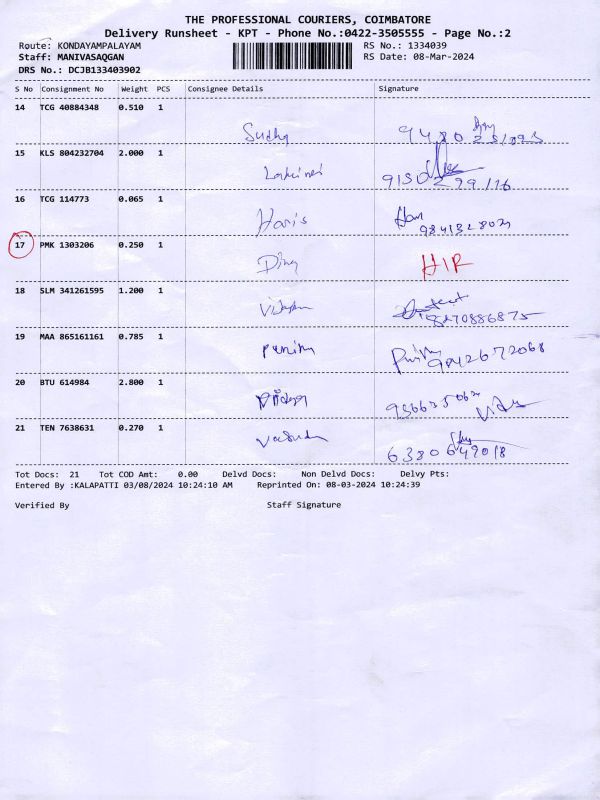 THE PROFESSIONAL COURIERS, COIMBATORE
Delivery Runsheet - KPT - Phone No.:0422-3505555 - Page No.:2
Route: KONDAYAMPALAYAM RS No.: 1334039
Staff: MANIVASAQGAN RS Date: 08-Mar-2024
DRS No.: DCJB133403902
S No Consignment No Weight PCS Consignee Details Signature
14 TCG 40884348 0.510 1
Sudha
15 KLS 804232704 2.000 1
16 TCG 114773 0.065 1
Haris
17 PMK 1303206 0.250 1
HIR
18 SLM 341261595 1.200 1
8270886875
19 MAA 865161161 0.785 1
9842672068
20 BTU 614984 2.800 1
21 TEN 7638631 0.270 1
6380649018
Tot Docs: 21 Tot COD Amt: 0.00 Delvd Docs: Non Delvd Docs: Delvy Pts:
Entered By :KALAPATTI 03/08/2024 10:24:10 AM Reprinted On: 08-03-2024 10:24:39
Verified By Staff Signature